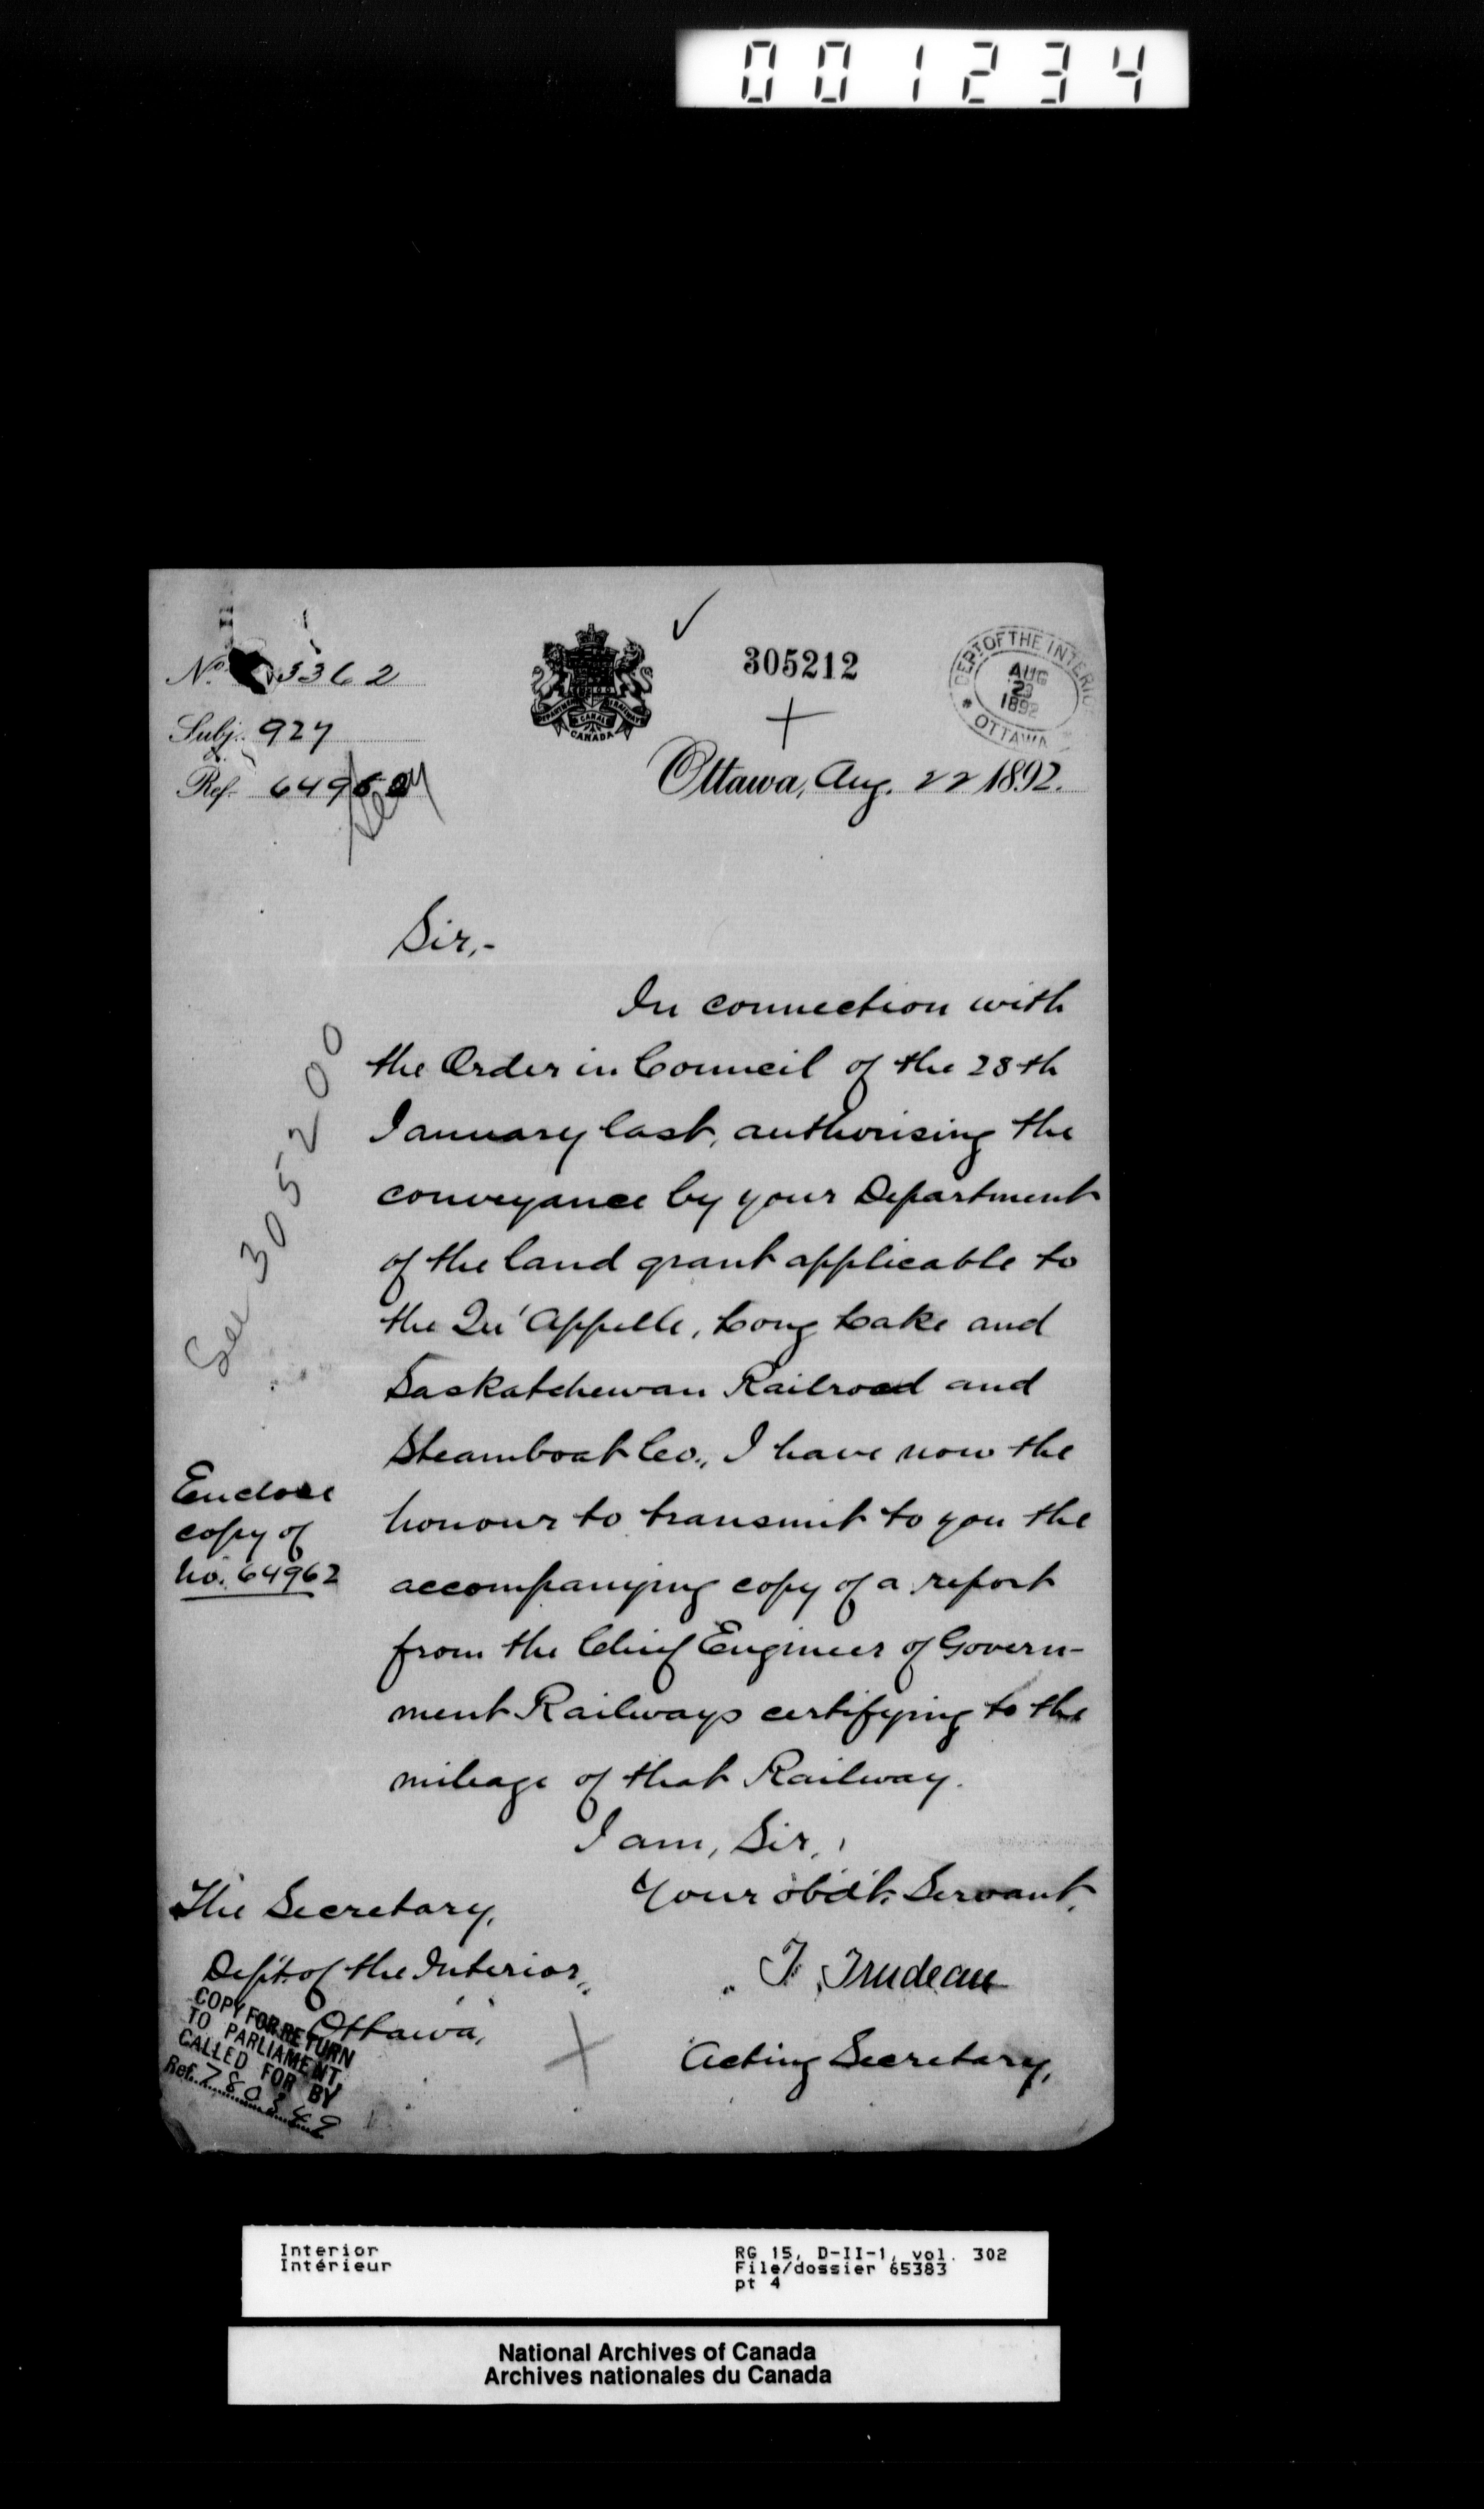 001234
No. 3362
305212
DEPT. OF THE INTERIOR
AUG
23
1892
* OTTAWA
DEPARTMENT RAILWAYS
& CANALS
CANADA
Subj. 927
Ref. 64962
Ottawa, Aug. 22 1892.
Sir,-
In connection with
the Order in Council of the 28th
January last, authorising the
conveyance by your Department
of the land grant applicable to
the Qu'Appelle, Long Lake and
Saskatchewan Railroad and
Steamboat Co., I have now the
honour to transmit to you the
accompanying copy of a report
from the Chief Engineer of Govern-
ment Railways certifying to the
mileage of that Railway.
I am, Sir,
Your obd't. Servant,
T. Trudeau
Acting Secretary,
See 305200
Enclose
copy of
No. 64962
The Secretary,
Dep't. of the Interior,
Ottawa,
COPY FOR RETURN
TO PARLIAMENT,
CALLED FOR BY
Ref. 780349
Interior
Intérieur
RG 15, D-II-1, vol. 302
File/dossier 65383
pt 4
National Archives of Canada
Archives nationales du Canada